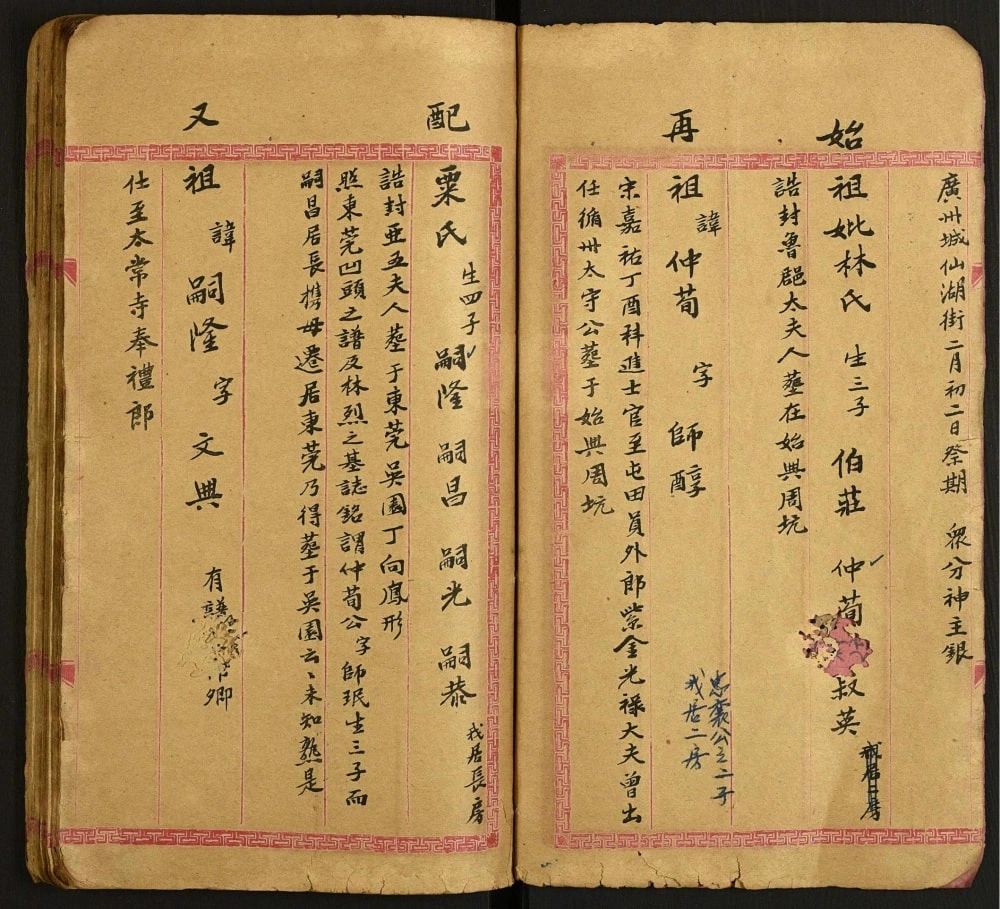 廣州城仙湖街二月初二日祭期 眾分神主銀
始祖妣林氏 生三子 伯莊 仲荀 叔英 我居二房
誥封魯郡太夫人塟在始興周坑
再祖諱仲荀 字師醇
忠襄公之二子
我居二房
宋嘉祐丁酉科進士官至屯田員外郎紫金光祿大夫曾出
任循州太守公塟于始興周坑
配粟氏 生四子 嗣隆 嗣昌 嗣光 嗣恭 我居長房
誥封亚五夫人塟于東莞吳園丁向鳳形
照東莞凹頭之譜及林烈之墓誌銘謂仲荀公字師珉生三子而
嗣昌居長携母遷居東莞乃得塟于吳園云〻未知熟是
又祖諱嗣隆 字文興 有 卿
仕至太常寺奉禮郎